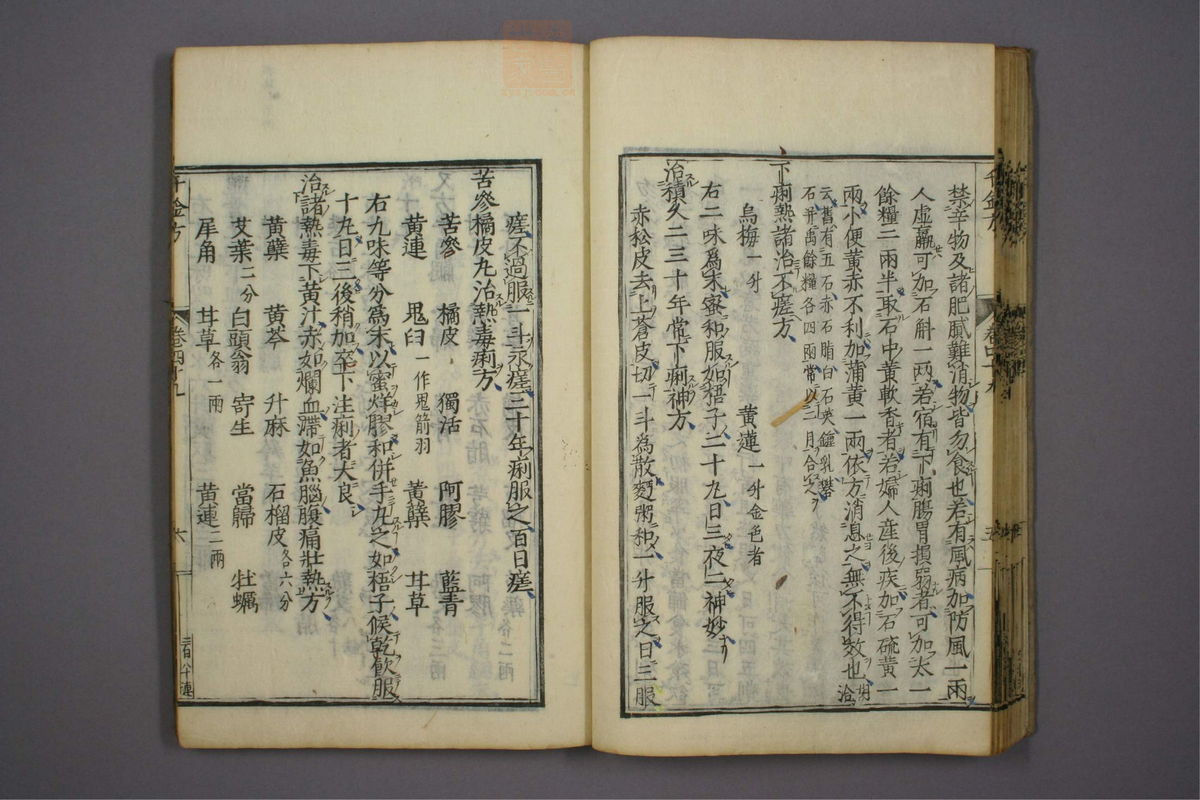 禁辛物及諸肥膩難消物皆勿食也若有風病加防風一兩
人虛羸可加石斛一兩若宿有下痢腸胃損弱者可加太一
餘糧二兩半取石中黃軟香者若婦人產後疾加石硫黃一
兩小便黃赤不利加蒲黃一兩依方消息之無不得效也
云舊有五石赤石脂白石英鍾乳礬
石并禹餘糧各四兩常以三月合之
下痢熱諸治不瘥方
烏梅一升 黃連一升金色者
右二味為末蜜和服如梧子二十丸日三夜二神妙
治積久二三十年常下痢神方
赤松皮去上蒼皮切一斗為散麪粥和一升服之日三服
瘥不過服一斗永瘥三十年痢服之百日瘥
苦參橘皮丸治熱毒痢方
苦參 橘皮 獨活 阿膠 藍青
黃連 鬼臼一作鬼箭羽 黃蘗 甘草
右九味等分為末以蜜烊膠和併手丸之如梧子候乾飲服
十丸日三後稍加卒下注痢者大良
治諸熱毒下黃汁赤如爛血滯如魚腦腹痛壯熱方
黃蘗 黃芩 升麻 石榴皮各六分
艾葉二分 白頭翁 寄生 當歸 牡蠣
犀角 甘草各一兩 黃連二兩
千金方
卷四十九
六